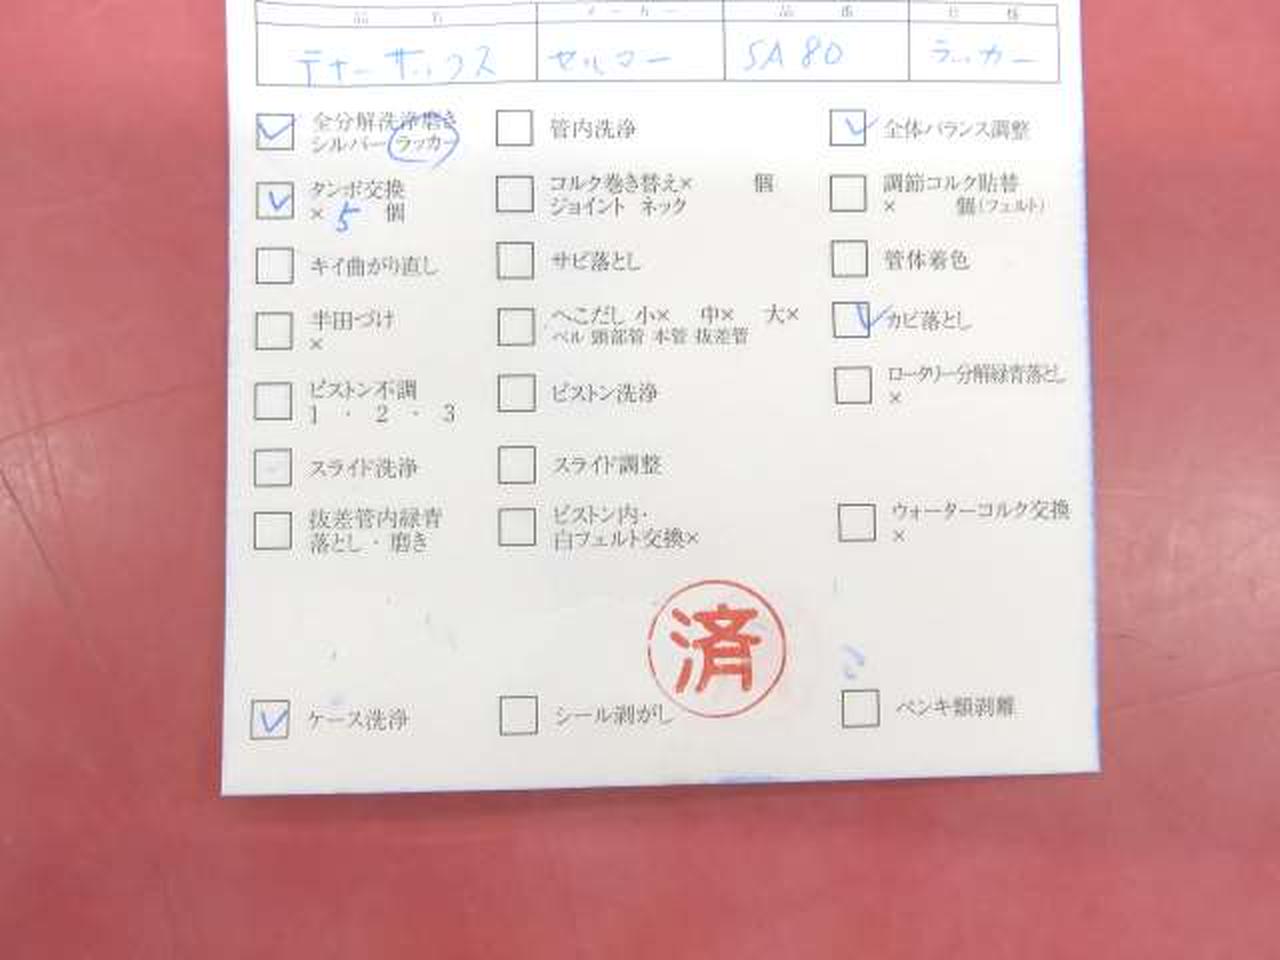 品名 メーカー 品番 仕様
テナーサックス セルマー SA80 ラッカー
全分解洗浄磨き
シルバー ラッカー
管内洗浄
全体バランス調整
タンポ交換
× 5 個
コルク巻き替え× 個
ジョイント ネック
調節コルク貼替
× 個(フェルト)
キイ曲がり直し
サビ落とし
管体着色
半田づけ
×
へこだし 小× 中× 大×
ベル 頭部管 本管 抜差管
カビ落とし
ピストン不調
1 ・ 2 ・ 3
ピストン洗浄
ロータリー分解緑青落とし
×
スライド洗浄
スライド調整
抜差管内緑青
落とし・磨き
ピストン内・
白フェルト交換×
ウォーターコルク交換
×
済
ケース洗浄
シール剥がし
ペンキ類剥離